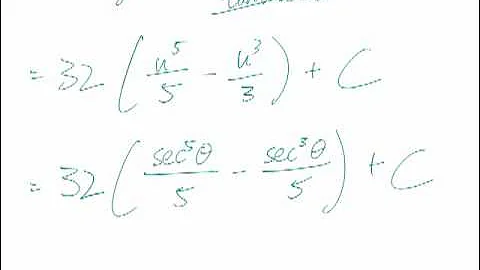 = 32 ( u⁵/5 - u³/3 ) + C
= 32 ( sec⁵θ/5 - sec³θ/5 ) + C